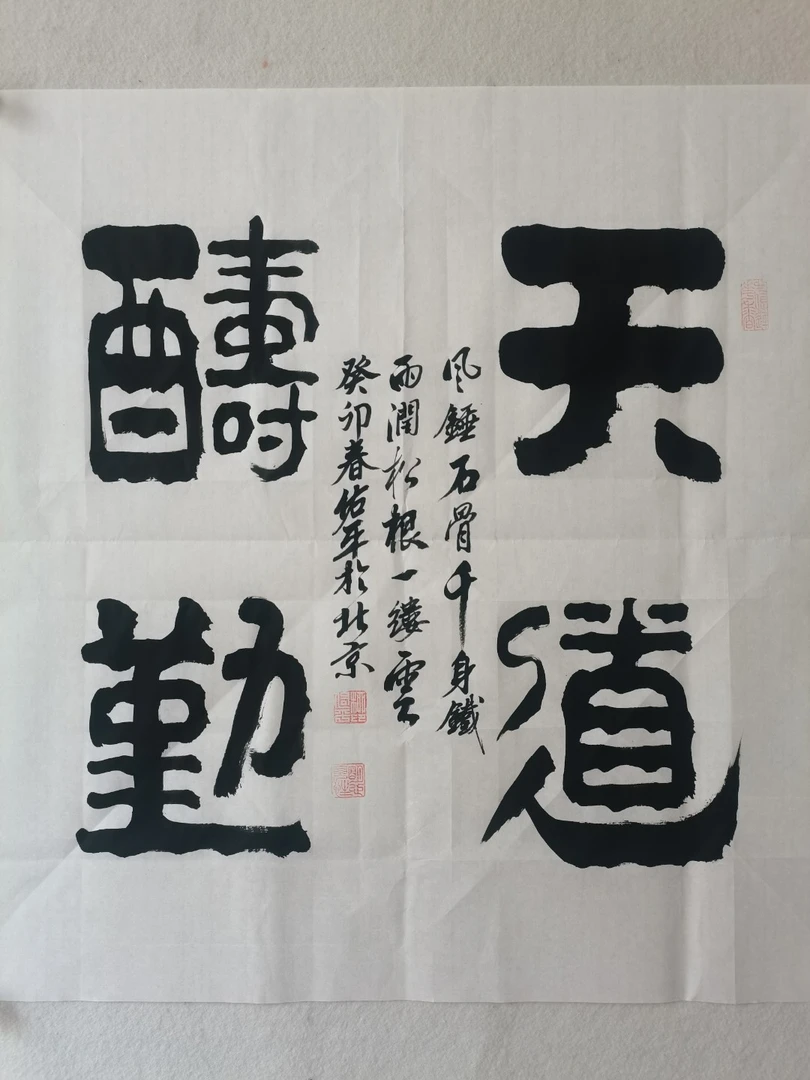 天道
醻勤
风錘石骨千身鐵
雨潤松根一縷雲
癸卯春佑年於北京